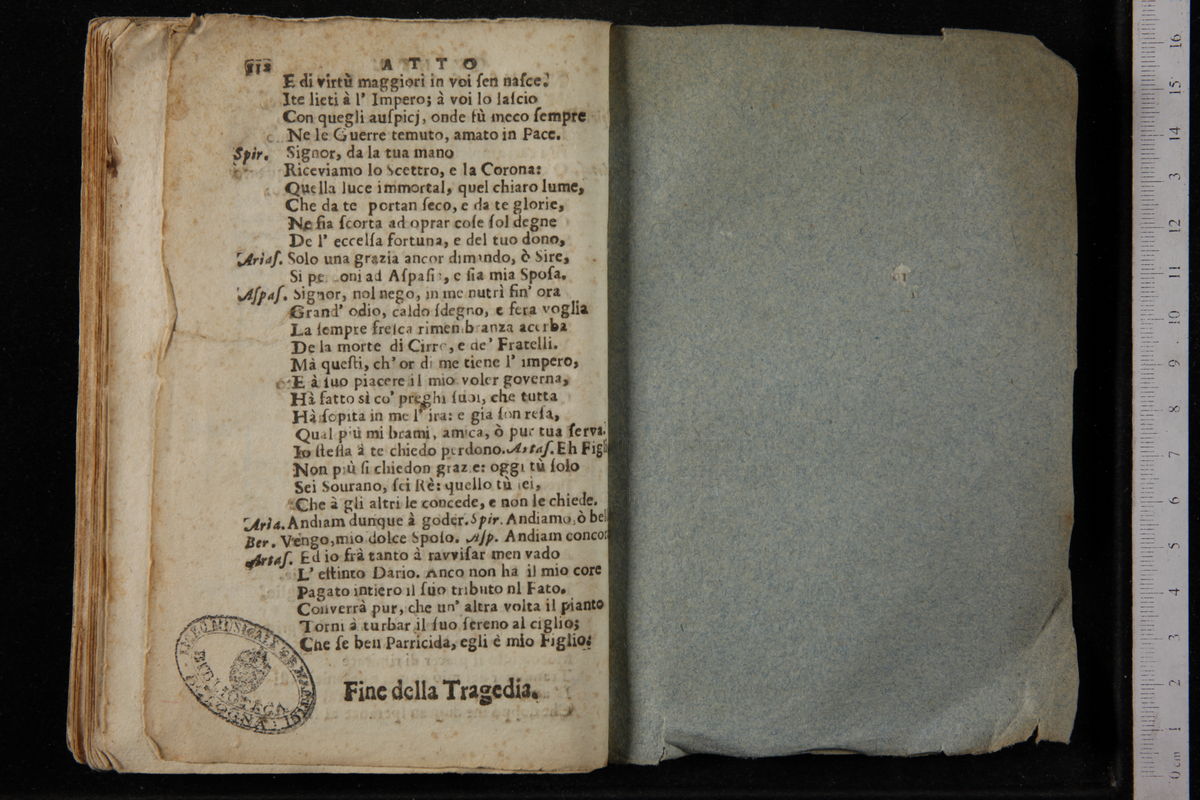 112 ATTO
E di virtù maggiori in voi ſen naſce.
Ite lieti à l' Impero; à voi lo laſcio
Con quegli auſpicj, onde fù meco ſempre
Ne le Guerre temuto, amato in Pace.
Spir. Signor, da la tua mano
Riceviamo lo Scettro, e la Corona:
Quella luce immortal, quel chiaro lume,
Che da te portan ſeco, e da te glorie,
Ne ſia ſcorta ad oprar coſe ſol degne
De l' eccelſa fortuna, e del tuo dono,
Ariaſ. Solo una grazia ancor dimando, ò Sire,
Si perdoni ad Aſpaſia, e ſia mia Spoſa.
Aſpaſ. Signor, nol nego, in me nutrì fin' ora
Grand' odio, caldo ſdegno, e fera voglia
La ſempre freſca rimembranza acerba
De la morte di Cirro, e de' Fratelli.
Mà queſti, ch' or di me tiene l' impero,
E à ſuo piacere il mio voler governa,
Hà fatto sì co' preghi ſuoi, che tutta
Hà ſopita in me l' ira: e gia ſon reſa,
Qual più mi brami, amica, ò pur tua ſerva.
Io ſteſſa à te chiedo perdono. Artaſ. Eh Figli
Non più ſi chiedon grazie: oggi tù ſolo
Sei Sourano, ſei Rè: quello tù ſei,
Che à gli altri le concede, e non le chiede.
Aria. Andiam dunque à goder. Spir. Andiamo, ò bel
Ber. Vengo, mio dolce Spoſo. Aſp. Andiam concor
Artaſ. Ed io frà tanto à ravviſar men vado
L' eſtinto Dario. Anco non ha il mio core
Pagato intiero il ſuo tributo al Fato.
Converrà pur, che un' altra volta il pianto
Torni à turbar il ſuo ſereno al ciglio;
Che ſe ben Parricida, egli è mio Figlio:
Fine della Tragedia.
LICEO MUSICALE G.B. MARTINI
BIBLIOTECA
BOLOGNA
0 cm 1 2 3 4 5 6 7 8 9 10 11 12 13 14 15 16